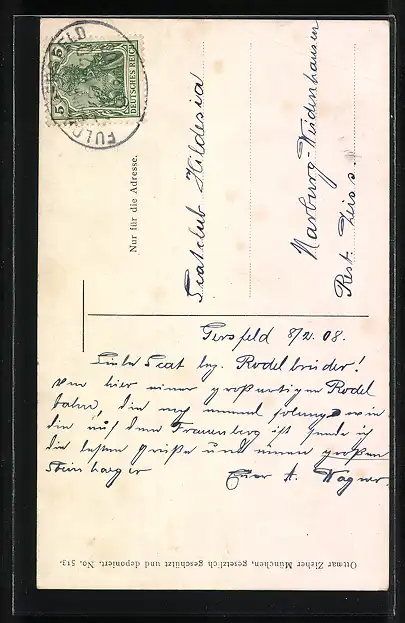 FULDA GERSFELD
DEUTSCHES REICH
5 5
Nur für die Adresse.
Scatclub Hildesia
Marburg-Weidenhausen
Rest. Zeiss.
Gersfeld 8/2. 08.
Liebe Scat bez. Rodelbrüder!
Von hier einer großartigen Rodel
bahn, die noch einmal so lang wie
die auf dem Frauenberg ist sende ich
die besten Grüße und einen großen
Steinhaeger Euer A. Wagner.
Ottmar Zieher München, gesetzlich geschützt und deponiert. No. 513.